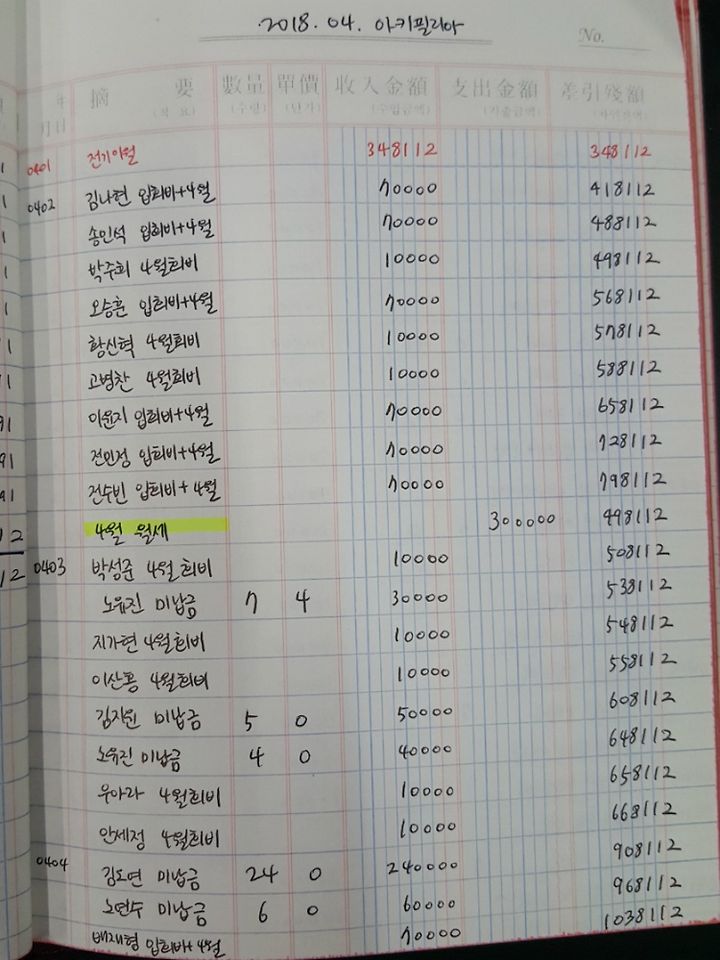 2018. 04. 아키필리아
No.
年 月日 摘 要 (적 요) 數量 (수량) 單價 (단가) 收入金額 (수입금액) 支出金額 (지출금액) 差引殘額 (차인잔액)
0401 전기이월 348112 348112
0402 김나현 입회비+4월 70000 418112
송민석 입회비+4월 70000 488112
박주희 4월회비 10000 498112
오승훈 입회비+4월 70000 568112
황신혁 4월회비 10000 578112
고병찬 4월회비 10000 588112
이윤지 입회비+4월 70000 658112
전민정 입회비+4월 70000 728112
전수빈 입회비+4월 70000 798112
4월 월세 300000 498112
0403 박성준 4월회비 10000 508112
노유진 미납금 7 4 30000 538112
지가현 4월회비 10000 548112
이산홍 4월회비 10000 558112
김지원 미납금 5 0 50000 608112
노유진 미납금 4 0 40000 648112
우아라 4월회비 10000 658112
안세정 4월회비 10000 668112
0404 김도연 미납금 24 0 240000 908112
노연수 미납금 6 0 60000 968112
배재형 입회비+4월 70000 1038112